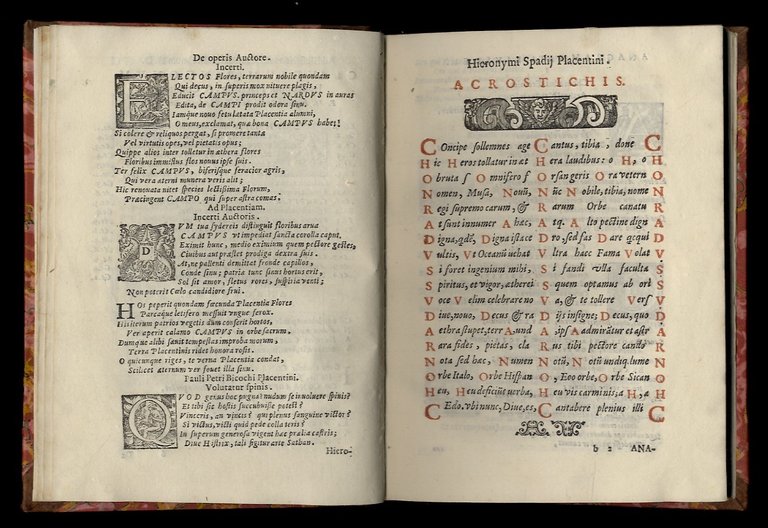 De operis Auctore.
Incerti.
ELECTOS Flores, terrarum nobile quondam
Qui decus, in superis mox nituere plagis,
Educit CAMPVS. princeps et NARDVS in auras
Edita, de CAMPI prodit odora sinu.
Iamque nouo fetu lætata Placentia alumni,
O meus, exclamat, quæ bona CAMPVS habet!
Si colere & reliquos pergat, si promere tanta
Vel virtutis opes, vel pietatis opus;
Quippe alios inter tolletur in æthera flores
Floribus immistus flos nouus ipse suis.
Ter felix CAMPVS, biferisque feracior agris,
Qui vera æterni munera veris alit;
Hic renouata nitet species lectissima Florum,
Præcingent CAMPO qui super astra comas.
Ad Placentiam.
Incerti Auctoris.
DVM tua sydereis distinguit floribus arua
CAMPVS vt impediat sancta corolla caput,
Eximit hunc, medio eximium quem pectore gestes,
Ciuibus ant prastet prodiga dextra suis.
At, ne pallenti demittat fronde capillos,
Conde sinu; patria tunc sanus hortus erit,
Sol sit amor, fletus rores, suspiria venti;
Non poterit Cælo candidiore frui.
HOs peperit quondam fæcunda Placentia Flores
Parcaque letifero messuit vngue ferox.
His iterum patrios vegetis dum conserit hortos,
Ver aperit calamo CAMPVS in orbe sacrum.
Dumque alibi sauit tempestas improba morum,
Terra Placentinis ridet honora rosis.
O quicunque viges, te verna Placentia condat,
Scilicet æternum ver fouet illa sinu.
Pauli Petri Bicochi Placentini.
Volutatur spinis.
QVOD genus hoc pugnæ? nudum se inuoluere spinis?
Et tibi sic hostis succubuisse potest?
Vinceris, an vincis? qui plenus sanguine victor?
Si victus, victi quid pede colla teris?
In superum generosa vigent hæc prælia castris;
Diue Histrix, tali figitur arte Sathan.
Hiero-
Hieronymi Spadij Placentini.
ACROSTICHIS.
Concipe sollemnes age Cantus, tibia, donec
Hic Heros tollatur in æthera laudibus: oh, o
Obruta f Omnifero f Orsan geris Ora vetern
Nomen, Musa, Nouũ, Nũc Nobile, tibia, nome
Regi supremo carum, & Rarum Orbe canatu
Atsunt innumer Ahac, Atq. Alto pectine dign
Digna, quõ, Digna istac Dro, sed fas Dare quui
Vultis, vt Oceani uehat Vltra hæc Fama Volat
Si foret ingenium mihi, Si fandi vlla faculta
Spiritus, et vigor, ætherei Squem optamus ab ori
Voce Velim celebrare no Va, & te tollere Vers
Diue, nouo, Decus & ra Dijs insigne; Decus, quo
Aethra stupet, terr A, und A, ips Admirãtur et astr
Rara fides, pietas, cla Rus tibi pectore cando
Nota sed hac, Numen Notũ, Notũ undiq. lume
Orbe Italo, Orbe Hispan O, Eoo orbe, Orbe Sican
Heu, Heu deficiũt uerba, Heu vis carminis; a H, a
CEdo. vbi nunc, Diue, es, Cantabere plenius illi C
b 2 ANA-